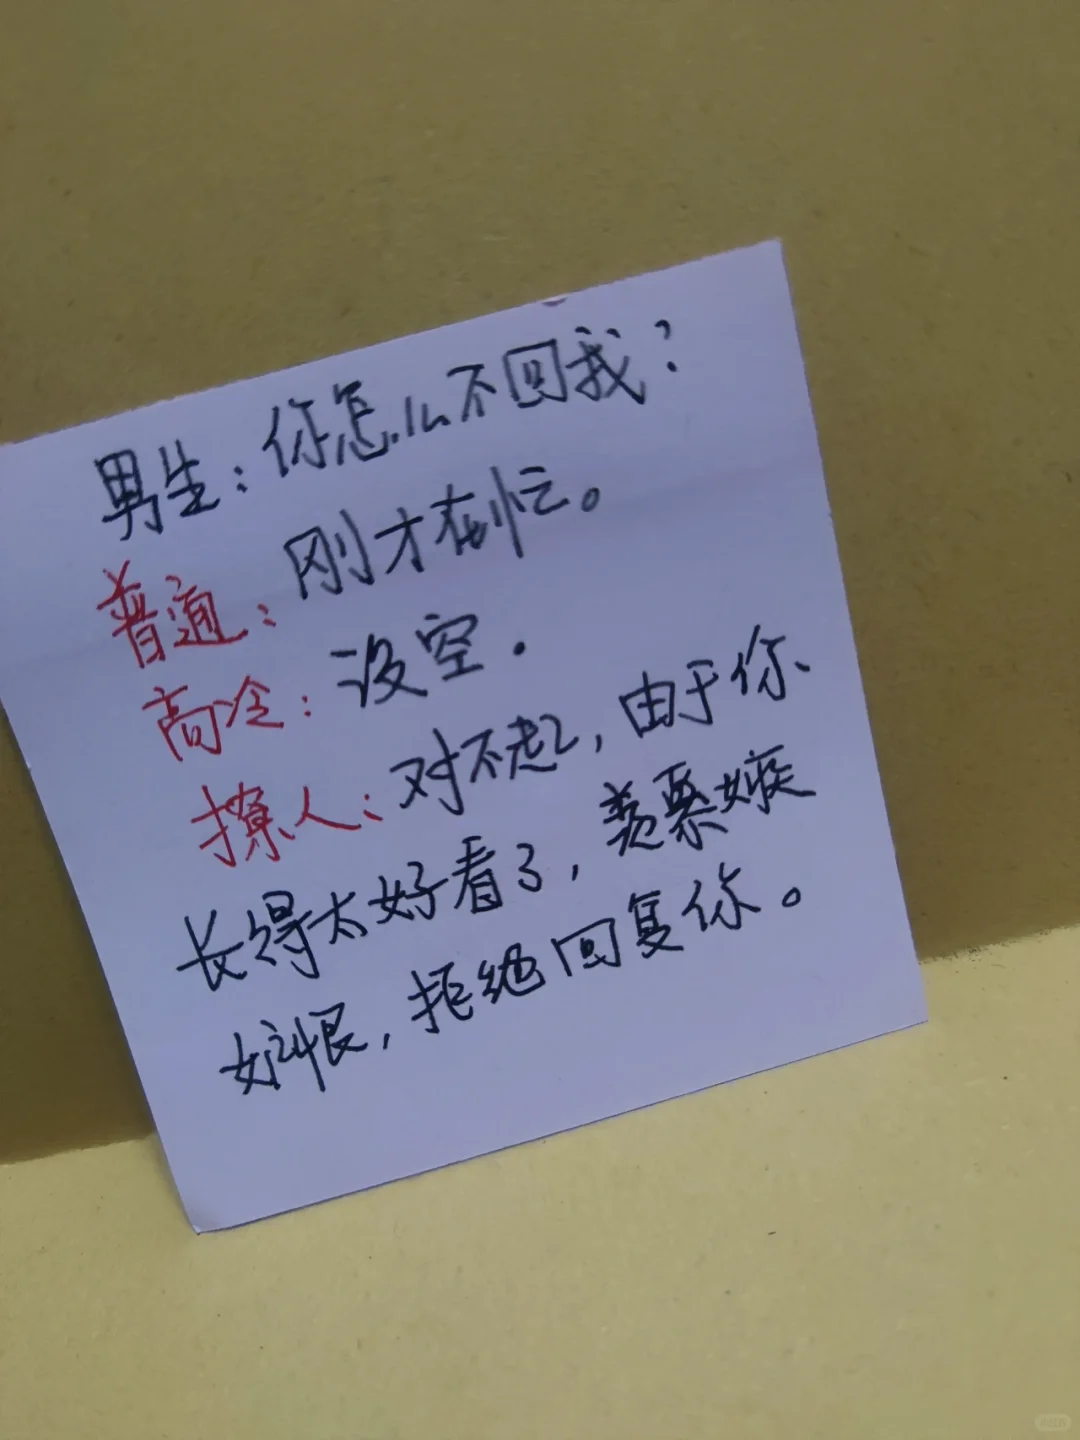 男生：你怎么不回我？
普通：刚才在忙。
高冷：没空.
撩人：对不起，由于你
长得太好看了，羡慕嫉
妒恨，拒绝回复你。